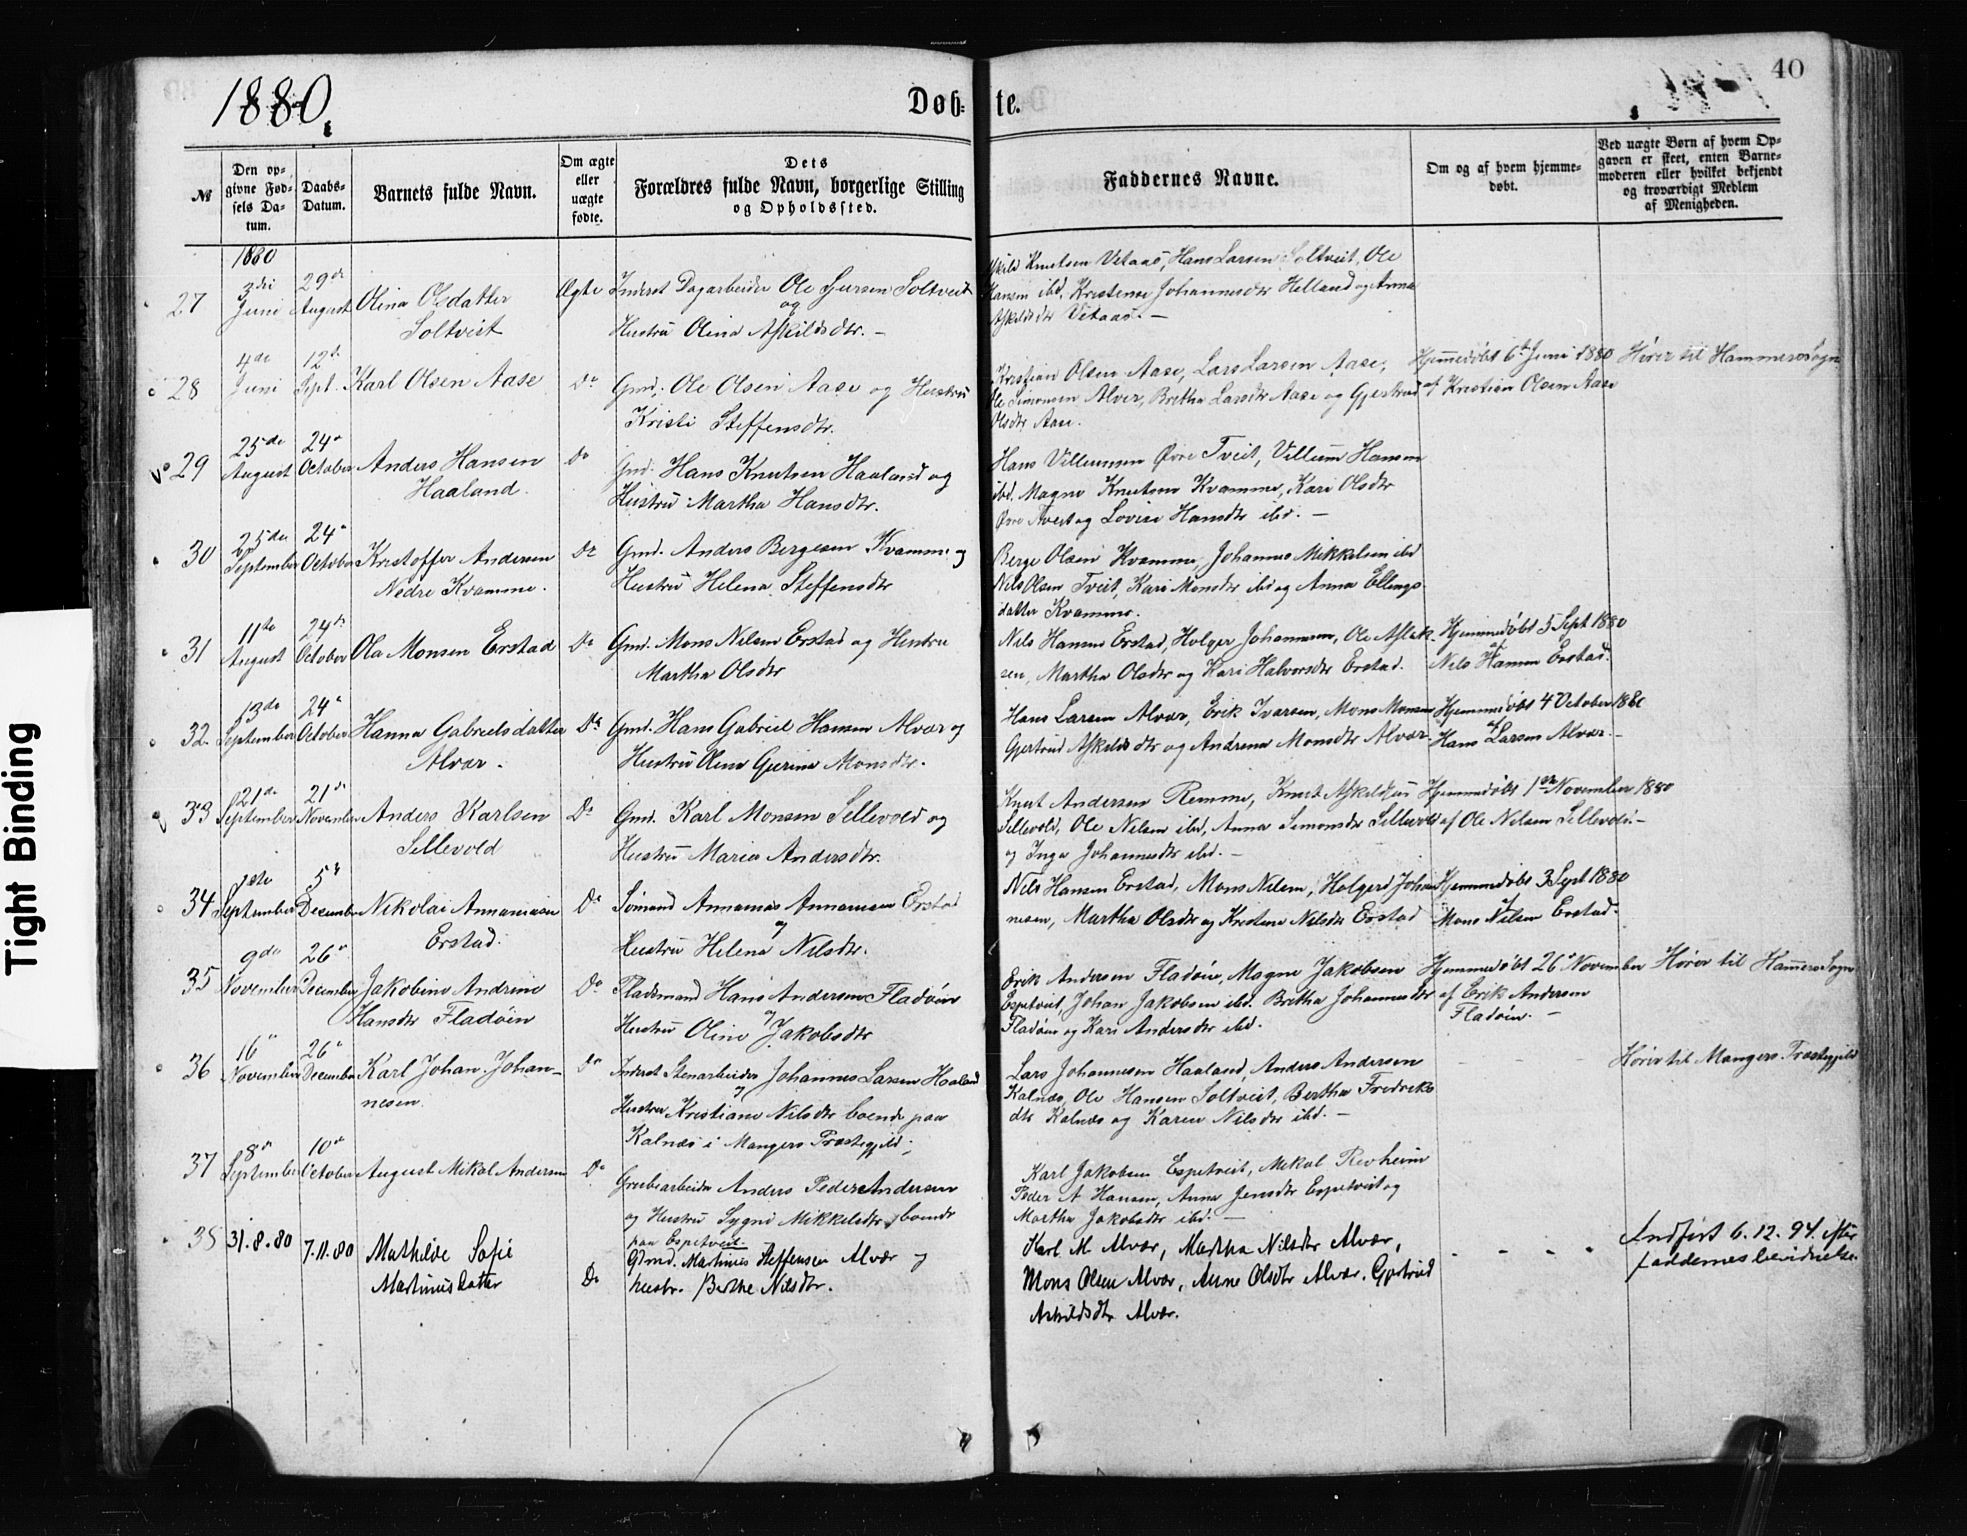 40
1880.
Døb-te.
Tight Binding
№
Den op-
givne Fød-
sels Da-
tum.
Daabs-
Datum.
Barnets fulde Navn.
Om ægte
eller
uægte
fødte.
Dets
Forældres fulde Navn, borgerlige Stilling
og Opholdssted.
Faddernes Navne.
Om og af hvem hjemme-
døbt.
Ved uægte Børn af hvem Op-
gaven er skeet, enten Barne-
moderen eller hvilket bekjendt
og troværdigt Medlem
af Menigheden.
1880
27
3die
Juni
29de
August
Olina Olsdatter
Soltveit
Ægte
Inderst Dagarbeider Ole Sjursen Soltveit
og
Hustru Olina Askildsdtr. –
Askild Knutsen Vetaas, Hans Larsen Soltveit, Ole
Hansen ibd. Kristense Johannesdtr Helland og Anna
Askildsdtr Vetaas. –
28
4de
Juni
12te
Sept.
Karl Olsen Aase
Do
Gmd. Ole Olsen Aase og Hustru
Kristi Steffensdtr.
Kristian Olsen Aase, Lars Larsen Aase,
Ole Simonsen Alver, Britha Larsdtr Aase og Gjertrud
Olsdtr Aase.
Hjemmedøbt 6te Juni 1880
af Kristian Olsen Aase
Hører til Hammers Sogn
29
25de
August
24de
October
Anders Hansen
Haaland.
Do
Gmd. Hans Knutsen Haaland og
Hustru Martha Hansdtr.
Hans Villumsen Øvre Tveit, Villum Hansen
ibd. Magne Knutsen Kvamme, Kari Olsdtr
Øvre Tveit og Lovise Hansdtr ibd. –
30
25de
September
24de
October
Kristoffer Andersen
Nedre Kvamme.
Do
Gmd. Anders Bergesen Kvamme og
Hustru Helena Steffensdtr
Berge Olsen Kvamme, Johannes Mikkelsen ibd
Nils Olsen Tveit, Kari Monsdtr ibd og Anna Ellings-
datter Kvamme.
31
11te
August
24de
October
Ola Monsen Erstad
Do
Gmd. Mons Nilsen Erstad og Hustru
Martha Olsdtr
Nils Hansen Erstad, Holger Johannesen, Ole Aslak-
sen, Martha Olsdtr og Kari Halvorsdtr Erstad.
Hjemmedøbt 5 Sept 1880
af
Nils Hansen Erstad.
32
13de
September
24de
October
Hanna Gabrielsdatter
Alvær.
Do
Gmd. Hans Gabriel Hansen Alvær og
Hustru Olina Gurina Monsdtr.
Hans Larsen Alvær, Erik Ivarsen, Mons Monsen
Gjertrud Askildsdtr og Andrena Monsdtr Alvær.
Hjemmedøbt 4 October 1880
af
Hans Larsen Alvær. –
33
21de
September
21de
November
Anders Karlsen
Sellevold
Do
Gmd. Karl Monsen Sellevold og
Hustru Maria Andersdtr.
Knut Andersen Remme, Knut Askildsen
Sellevold, Ole Nilsen ibd, Anna Simonsdtr Sellevold
og Inga Johannesdtr ibd. –
Hjemmedøbt 1ste November 1880
af Ole Nilsen Sellevold –
34
1ste
September
5te
December
Nikolai Annaniasen
Erstad.
Do
Sømand Annanias Annaniasen Erstad
og
Hustru Helena Nilsdtr.
Nils Hansen Erstad, Mons Nilsen, Holgerd Johan-
nesen, Martha Olsdtr og Kristense Nilsdtr Erstad
Hjemmedøbt 3 Sept 1880
af
Mons Nilsen Erstad.
35
9de
November
26de
December
Jakobine Andrine
Hansdtr Fladøin
Do
Pladsmand Hans Andersen Fladøin
og
Hustru Oline Jakobsdtr
Erik Andersen Fladøin, Magne Jakobsen
Espetveit, Johan Jakobsen ibd. Britha Johannesdtr
Fladøin og Kari Andersdtr ibd.
Hjemmedøbt 26de November
af Erik Andersen
Fladøin. –
Hører til Hammers Sogn
36
16de
November
26de
December
Karl Johan Johan-
nesen.
Do
Inderst Stenarbeider Johannes Larsen Haaland
og
Hustru Kristiane Nilsdtr boende paa
Kalnæs i Mangers Præstegjeld.
Lars Johannesen Haaland, Anders Andersen
Kalnæs, Ole Hansen Soltveit, Bertha Fredriks-
dtr Kalnæs og Karen Nilsdtr ibd. –
Hører til Mangers Præstegjeld
37
8de
September
10de
October
August Mikal Andersen
Do
Grubearbeider Anders Peder Andersen
og Hustru Sygni Mikkelsdtr, boende
paa Espetveit.
Karl Jakobsen Espetveit, Mikal Revheim
Peder A Hansen, Anna Jensdtr Espetveit og
Martha Jakobsdtr ibd. –
38
31.8.80
7.11.80
Mathilde Sofie
Martinusdatter
Do
Gbmd. Martinus Steffensen Alvær og
hustr. Berthe Nilsdtr.
Karl M. Alvær, Martha Nilsdtr Alvær,
Mons Olsen Alvær, Anne Olsdtr Alvær, Gjertrud
Askildsdtr Alvær.
Indført 6.12.94 efter
faddernes bevidnelse.